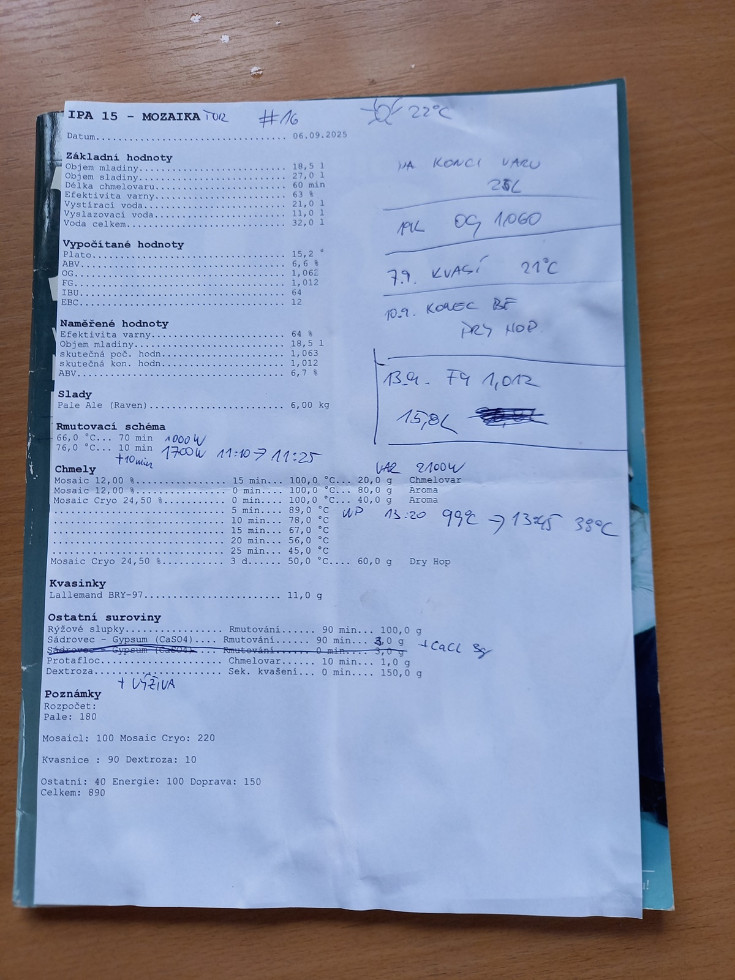 IPA 15 - MOZAIKATOR #16 22°C
Datum................................... 06.09.2025
Základní hodnoty
Objem mladiny........................... 18,5 l
Objem sladiny........................... 27,0 l
Délka chmelovaru........................ 60 min
Efektivita varny........................ 63 %
Vystírací voda.......................... 21,0 l
Vyslazovací voda........................ 11,0 l
Voda celkem............................. 32,0 l
NA KONCI VARU
25L
19L OG 1,060
7.9. KVASÍ 21°C
10.9. KONEC BF
DRY HOP
13.9. FG 1,012
15,8L
Vypočítané hodnoty
Plato................................... 15,2 °
ABV..................................... 6,6 %
OG...................................... 1,062
FG...................................... 1,012
IBU..................................... 64
EBC..................................... 12
Naměřené hodnoty
Efektivita varny........................ 64 %
Objem mladiny........................... 18,5 l
skutečná poč. hodn...................... 1,063
skutečná kon. hodn...................... 1,012
ABV..................................... 6,7 %
Slady
Pale Ale (Raven)........................ 6,00 kg
Rmutovací schéma
66,0 °C... 70 min 1000W
76,0 °C... 10 min 1700W 11:10 → 11:25
+10min
Chmely VAR 2100W
Mosaic 12,00 %................ 15 min... 100,0 °C... 20,0 g Chmelovar
Mosaic 12,00 %................ 0 min.... 100,0 °C... 80,0 g Aroma
Mosaic Cryo 24,50 %........... 0 min.... 100,0 °C... 40,0 g Aroma
.............................. 5 min.... 89,0 °C
.............................. 10 min... 78,0 °C WP 13:20 99°C → 13:45 38°C
.............................. 15 min... 67,0 °C
.............................. 20 min... 56,0 °C
.............................. 25 min... 45,0 °C
Mosaic Cryo 24,50 %........... 3 d..... 50,0 °C.... 60,0 g Dry Hop
Kvasinky
Lallemand BRY-97........................ 11,0 g
Ostatní suroviny
Rýžové slupky................ Rmutování...... 90 min... 100,0 g
Sádrovec - Gypsum (CaSO4).... Rmutování...... 90 min... 3,0 g + CaCl 3g
Sádrovec - Gypsum (CaSO4).... Rmutování...... 0 min.... 3,0 g
Protafloc.................... Chmelovar...... 10 min... 1,0 g
Dextroza..................... Sek. kvašení... 0 min... 150,0 g
+ VÝŽIVA
Poznámky
Rozpočet:
Pale: 180
Mosaicl: 100 Mosaic Cryo: 220
Kvasnice : 90 Dextroza: 10
Ostatni: 40 Energie: 100 Doprava: 150
Celkem: 890